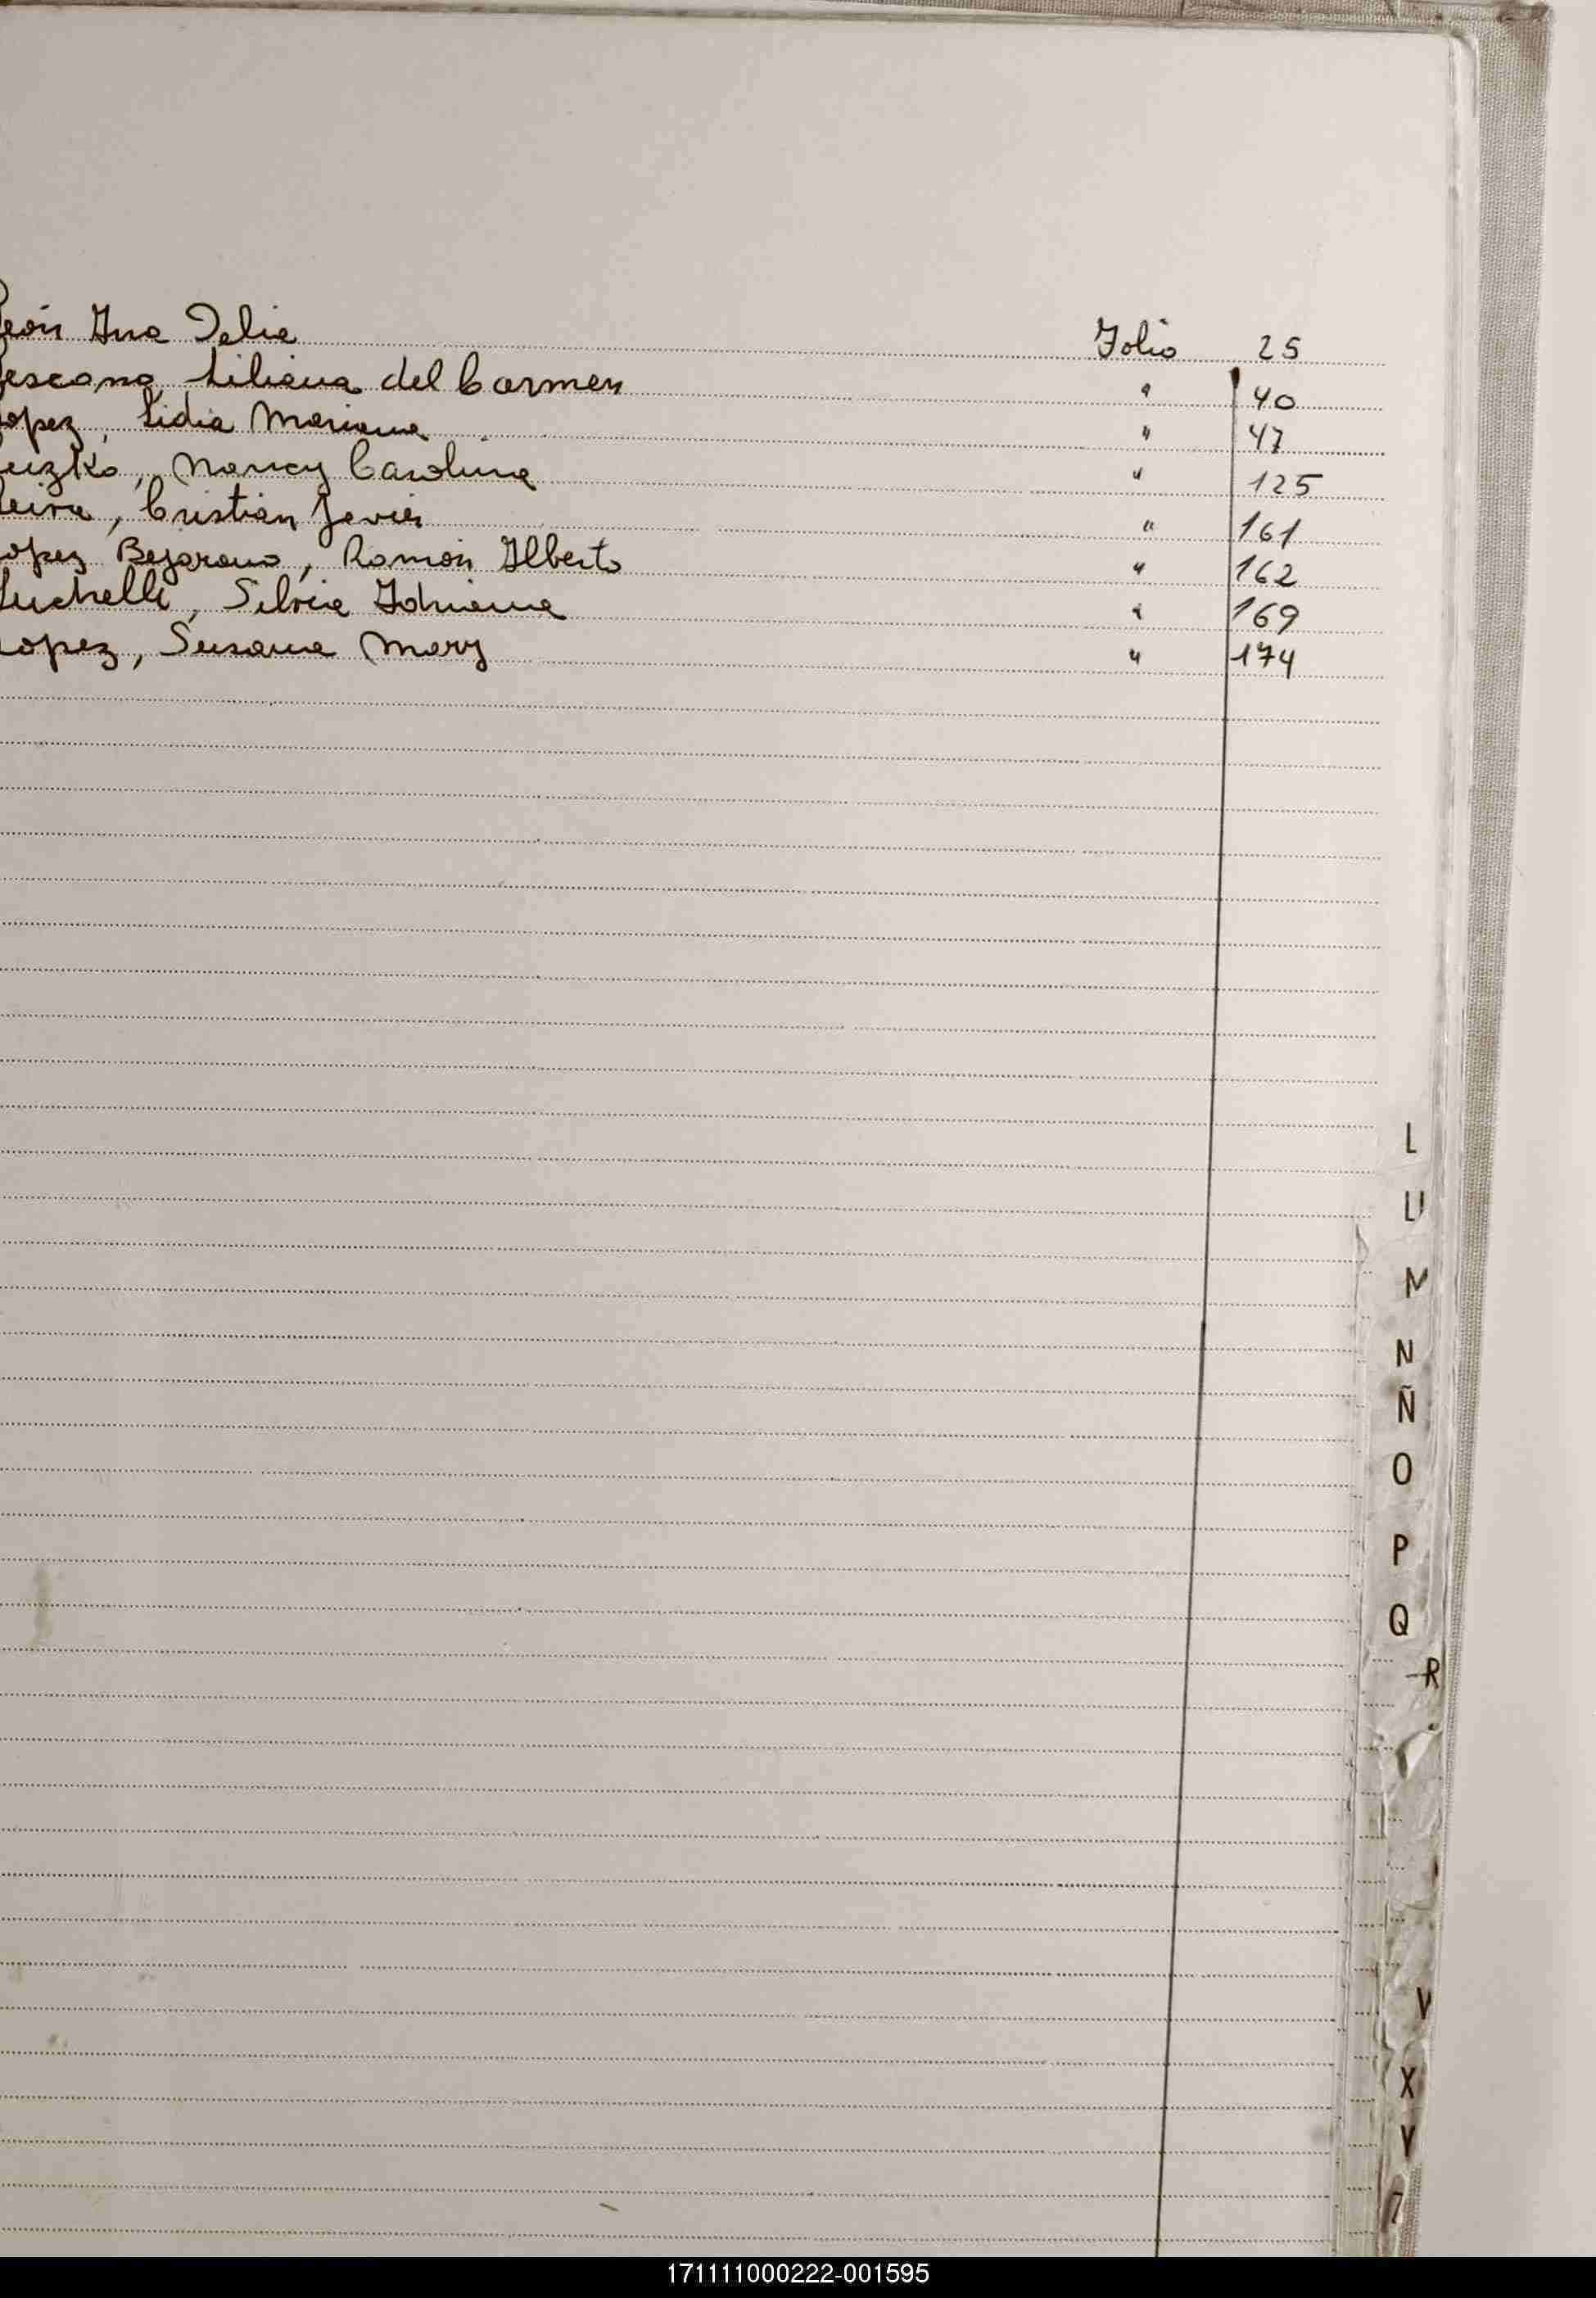 León Ana Delia Folio 25
Lescano, Liliana del Carmen " 40
Lopez, Lidia Mariana " 47
Luizko, Nancy Carolina " 125
Leiva, Cristian Javier " 161
Lopez Bejarano, Ramón Alberto " 162
Luchelli, Silvia Adriana " 169
Lopez, Susana Mary " 174
L
Ll
M
N
Ñ
O
P
Q
R
V
X
Y
Z
171111000222-001595